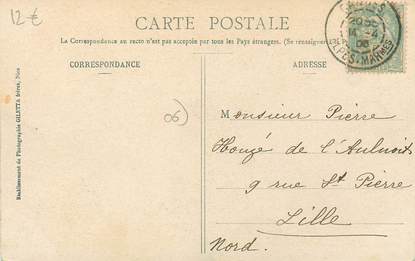 12-€
CARTE POSTALE
La Correspondance au recto n'est pas acceptée par tous les Pays étrangers. (Se renseigner
CORRESPONDANCE
ADRESSE
Etablissement de Photographie GILETTA frères, Nice
06)
14 -4
06
ALPES-MARMES
Monsieur Pierre
Houzé de l'Aulnoit
9 rue St Pierre
Lille
Nord.